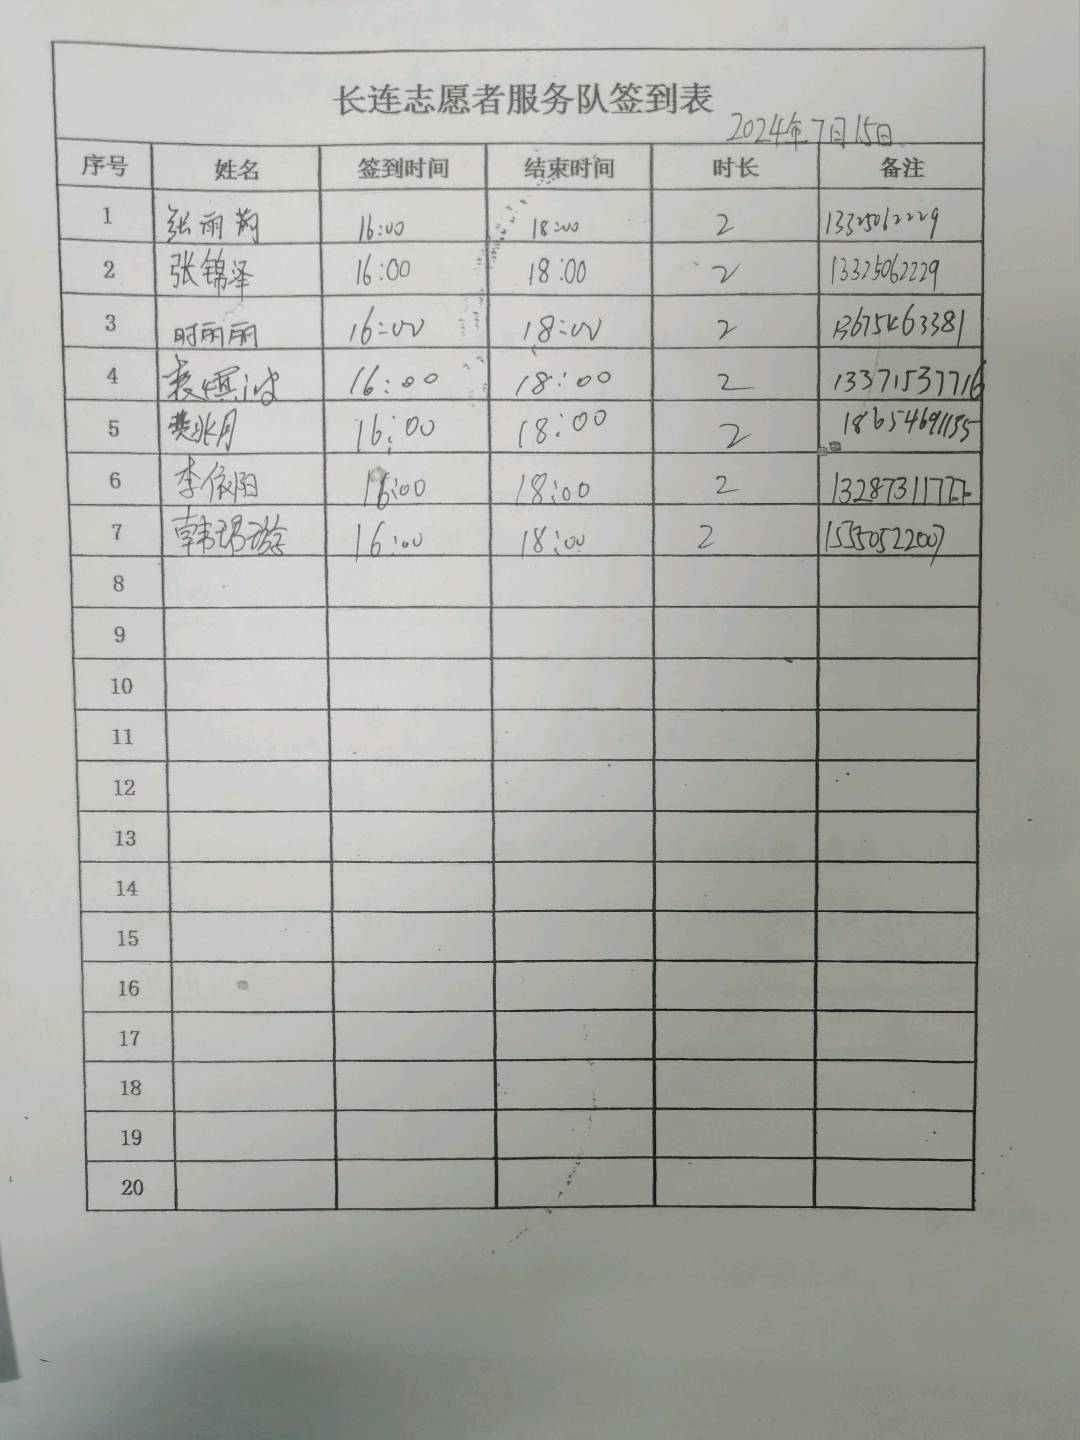 长连志愿者服务队签到表
2024年7月15日
序号 姓名 签到时间 结束时间 时长 备注
1 张雨 16:00 18:00 2 13325062229
2 张锦泽 16:00 18:00 2 13325062229
3 时丽丽 16:00 18:00 2 13675463381
4 16:00 18:00 2 13371537716
5 16:00 18:00 2 18654691135
6 李依阳 16:00 18:00 2 13287311777
7 韩 璇 16:00 18:00 2 15550522007
8
9
10
11
12
13
14
15
16
17
18
19
20